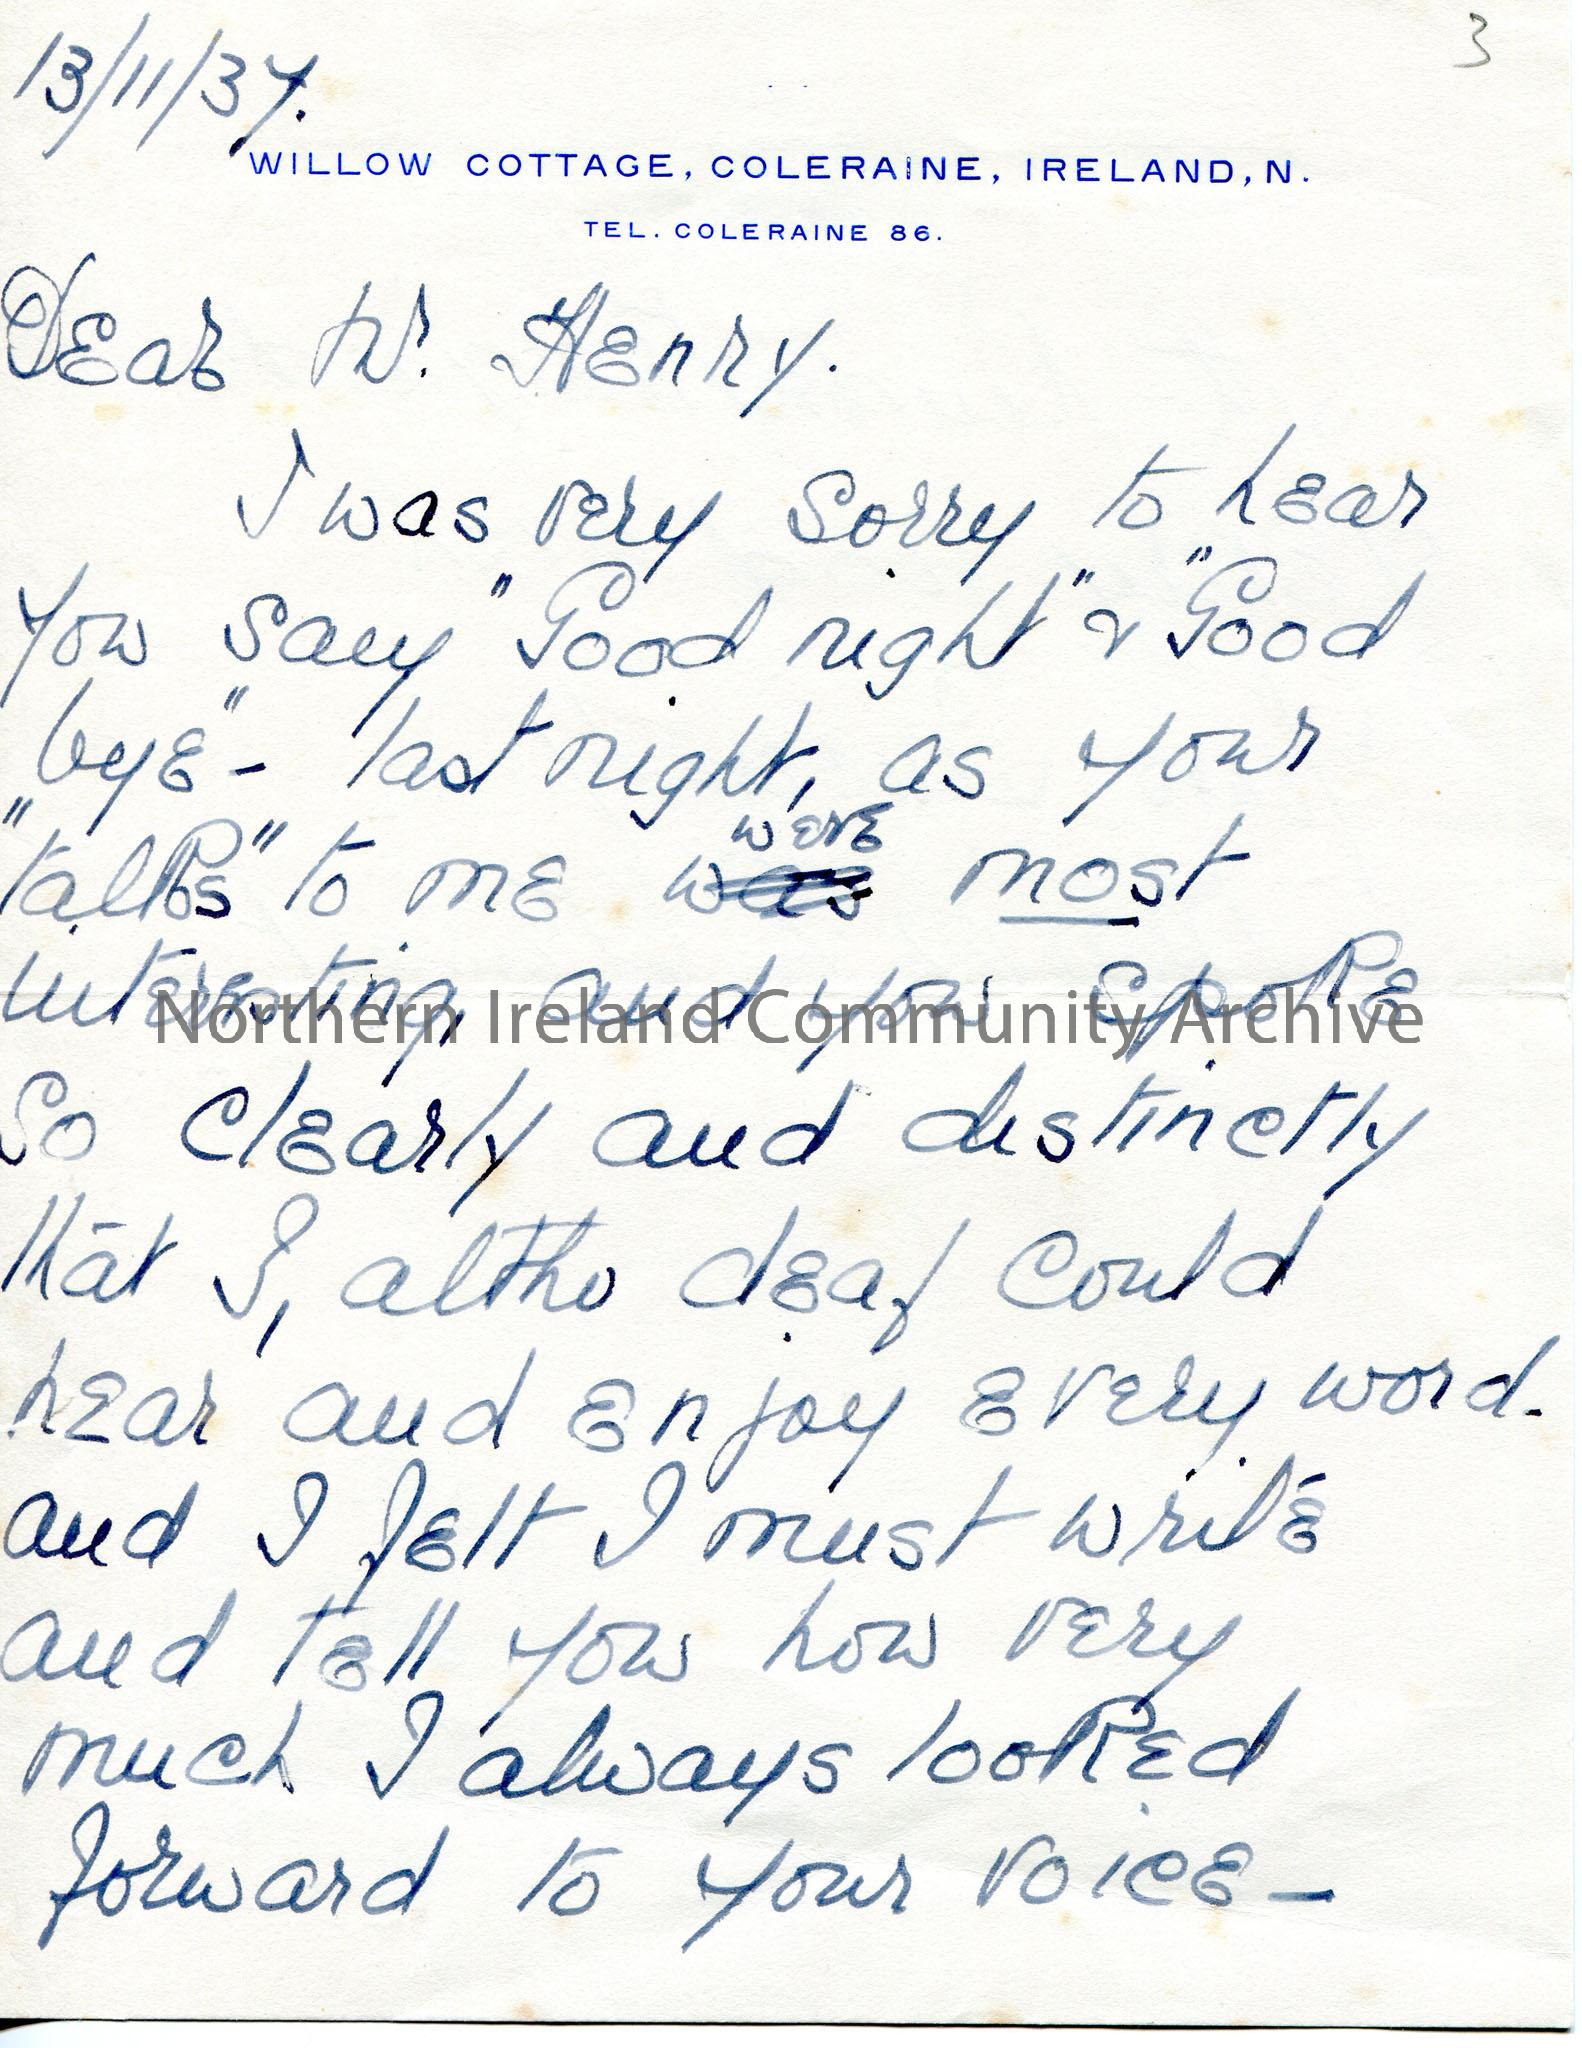 3
13/11/37.
WILLOW COTTAGE, COLERAINE, IRELAND, N.
TEL. COLERAINE 86.
Dear Dr. Henry.
I was very sorry to hear
you say "Good night" & "Good
bye" - last night, as your
"talks" to me were was most
interesting, and you spoke
Northern Ireland Community Archive
so clearly and distinctly
that I, altho deaf could
hear and enjoy every word.
and I felt I must write
and tell you how very
much I always looked
forward to your voice -